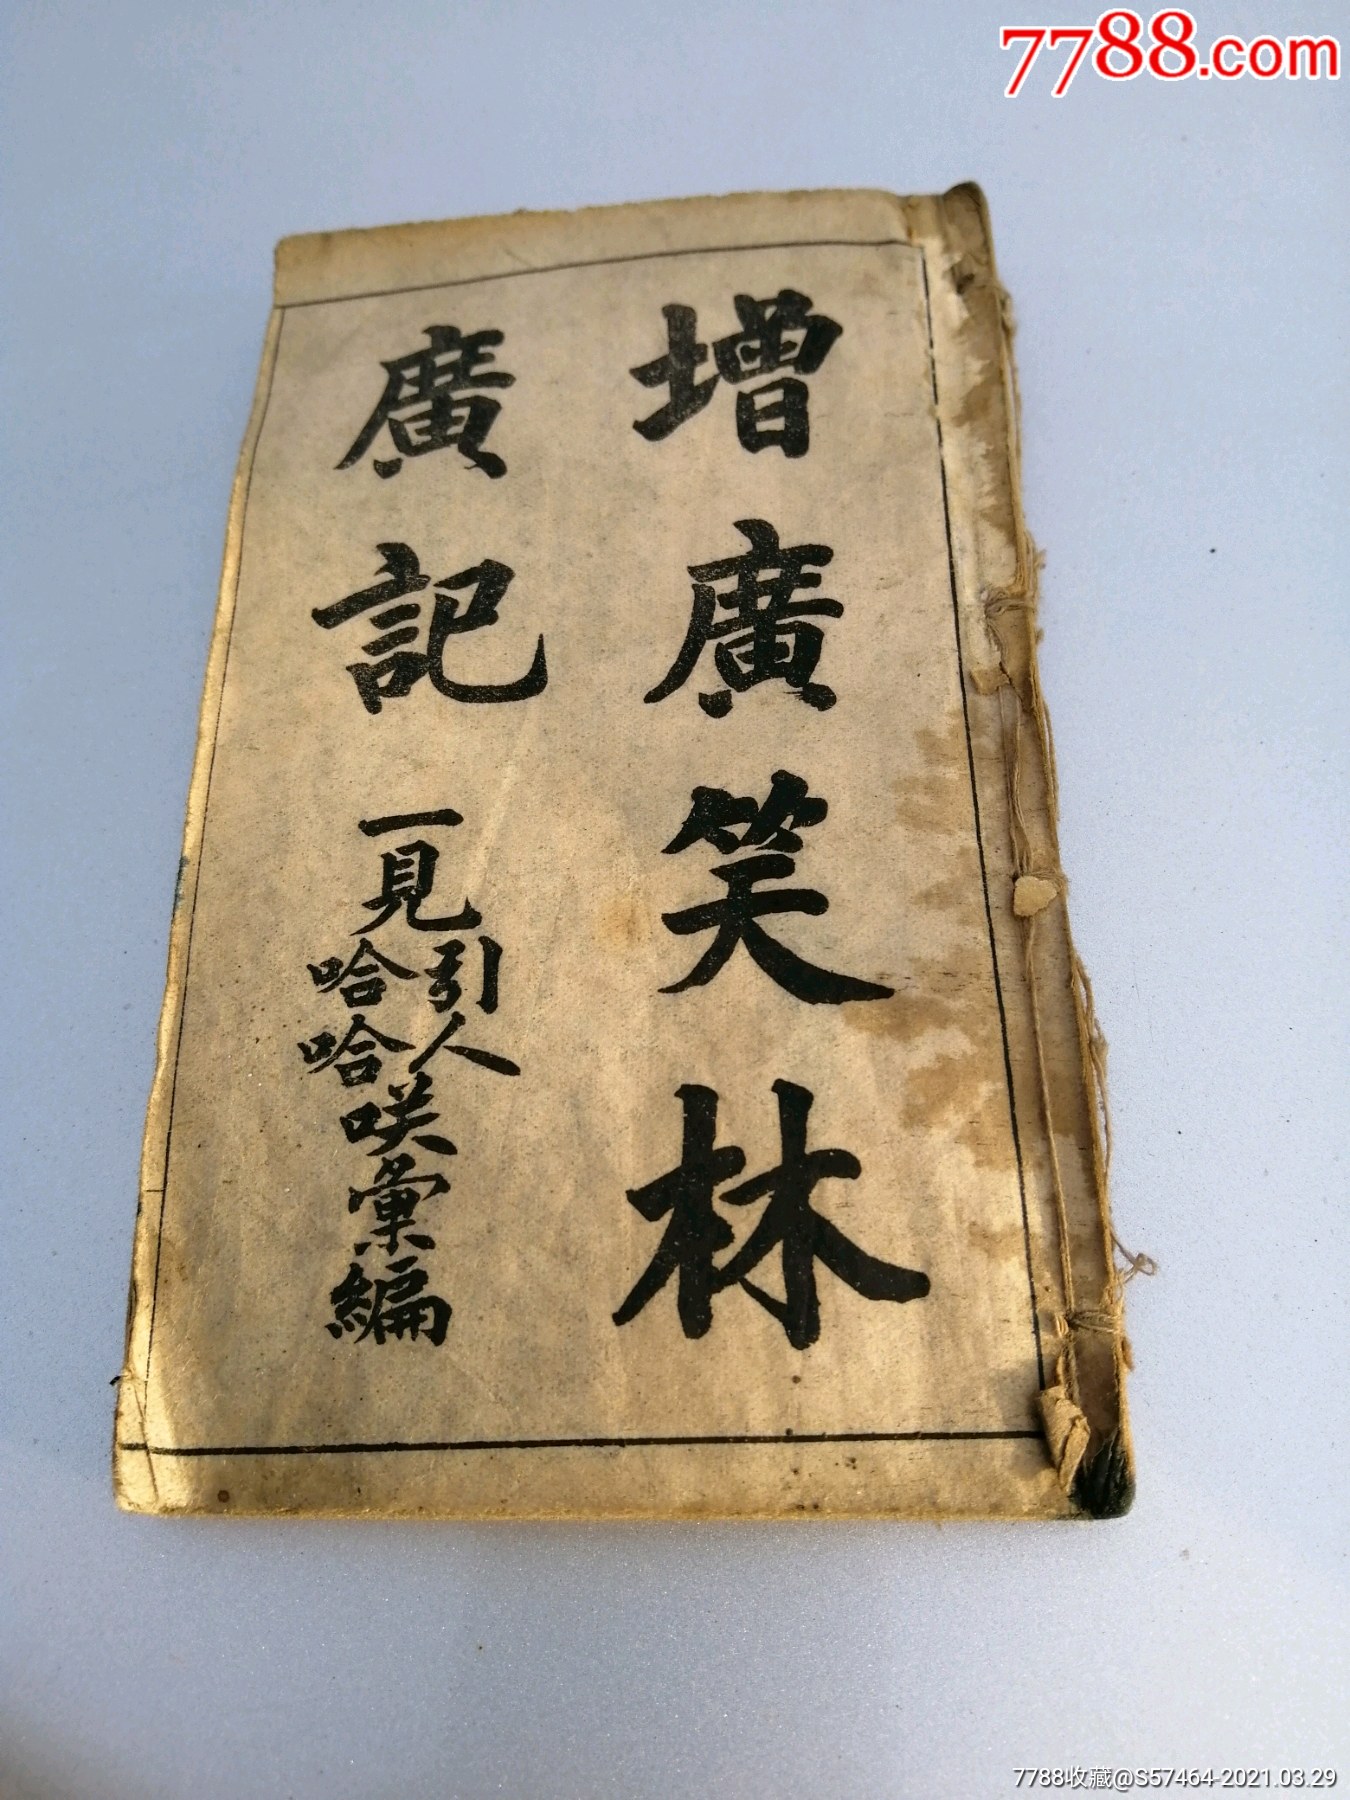 7788.com
增廣笑林
廣記
一見
引人
哈哈
咲彙編
7788收藏@S57464-2021.03.29